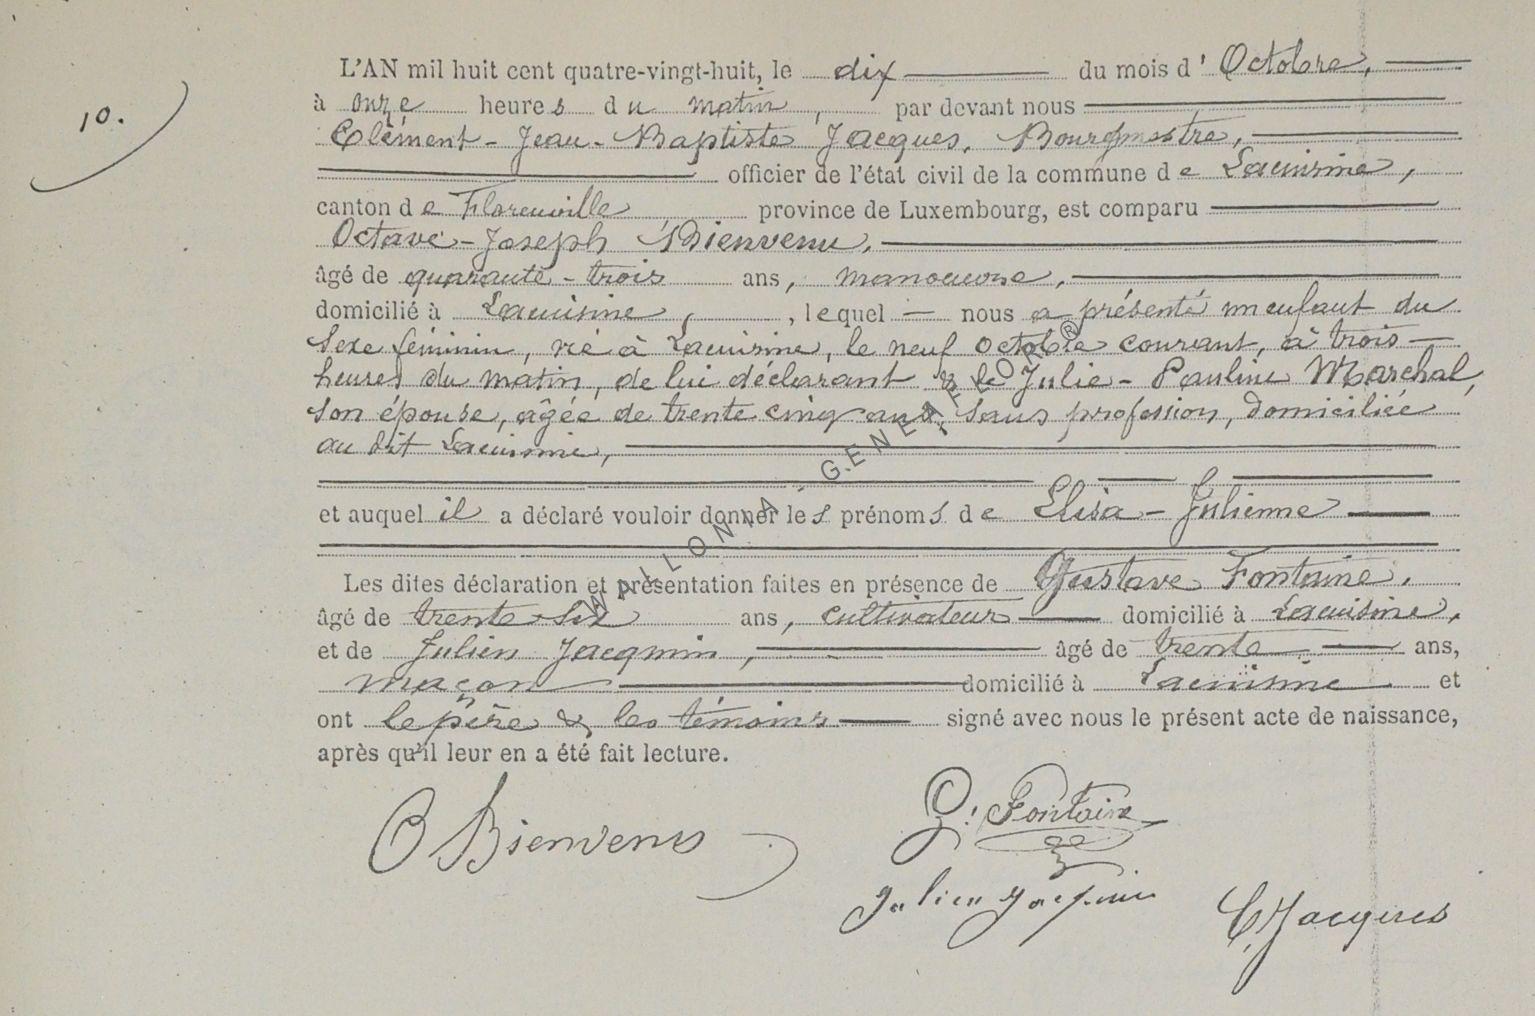 10.
L'AN mil huit cent quatre-vingt-huit, le dix du mois d' Octobre,
à onze heures du matin, par devant nous
Clément-Jean-Baptiste Jacques, Bourgmestre,
officier de l'état civil de la commune de Lacuisine,
canton de Florenville province de Luxembourg, est comparu
Octave-Joseph Bienvenu,
âgé de quarante-trois ans, manoeuvre,
domicilié à Lacuisine, , lequel nous a présenté un enfant du
sexe féminin, né à Lacuisine, le neuf octobre courant, à trois
heures du matin, de lui déclarant & de Julie-Pauline Marchal,
son épouse, âgée de trente cinq ans, sans profession, domiciliée
au dit Lacuisine,
et auquel il a déclaré vouloir donner les prénoms de Elisa-Julienne
Les dites déclaration et présentation faites en présence de Gustave Fontaine,
âgé de trente-six ans, cultivateur domicilié à Lacuisine,
et de Julien Jacqmin, âgé de trente ans,
maçon domicilié à Lacuisine et
ont le père & les témoins signé avec nous le présent acte de naissance,
après qu'il leur en a été fait lecture.
O Bienvenu
G. Fontaine
Julien Jacqmin
C. Jacques
WALLONIA GENEAFLOR®